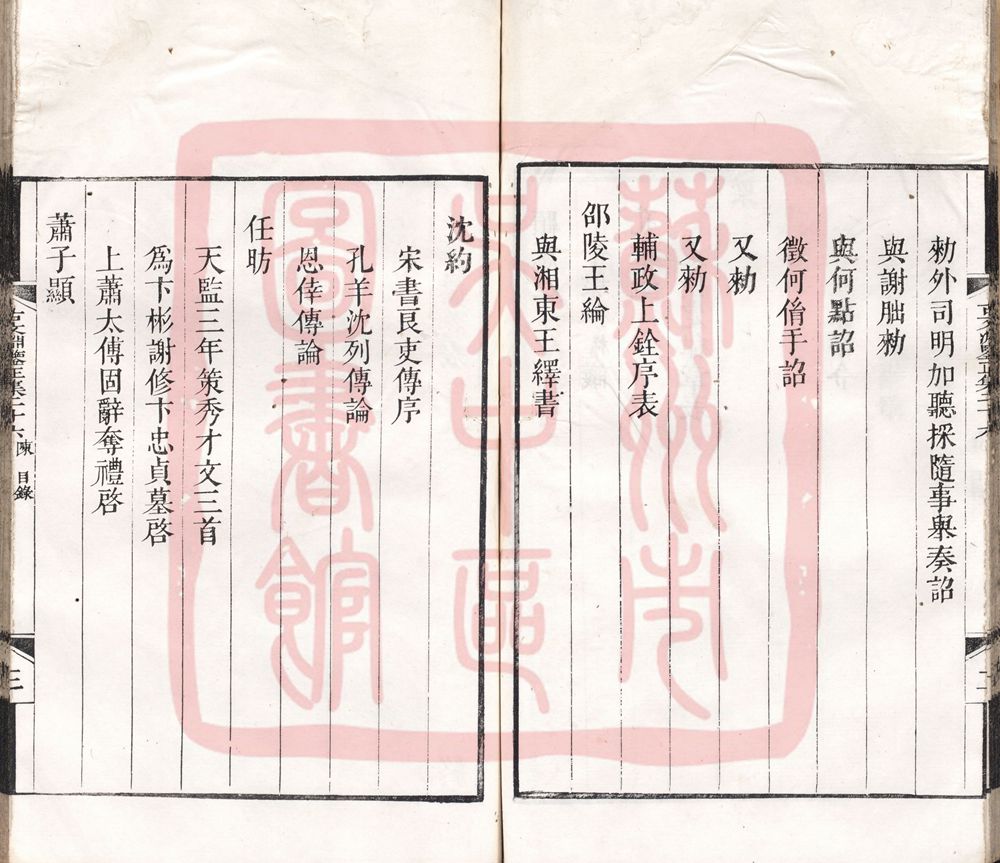 勑外司明加聽採隨事舉奏詔
與謝朏勑
與何點詔
徵何偹手詔
又勑
又勑
輔政上銓序表
邵陵王綸
與湘東王繹書
沈約
宋書良吏傳序
孔羊沈列傳論
恩倖傳論
任昉
天監三年策秀才文三首
爲卞彬謝修卞忠貞墓啓
上蕭太傅固辭奪禮啓
蕭子顯
陳 目錄
三
蘇州市
吳中區
圖書館